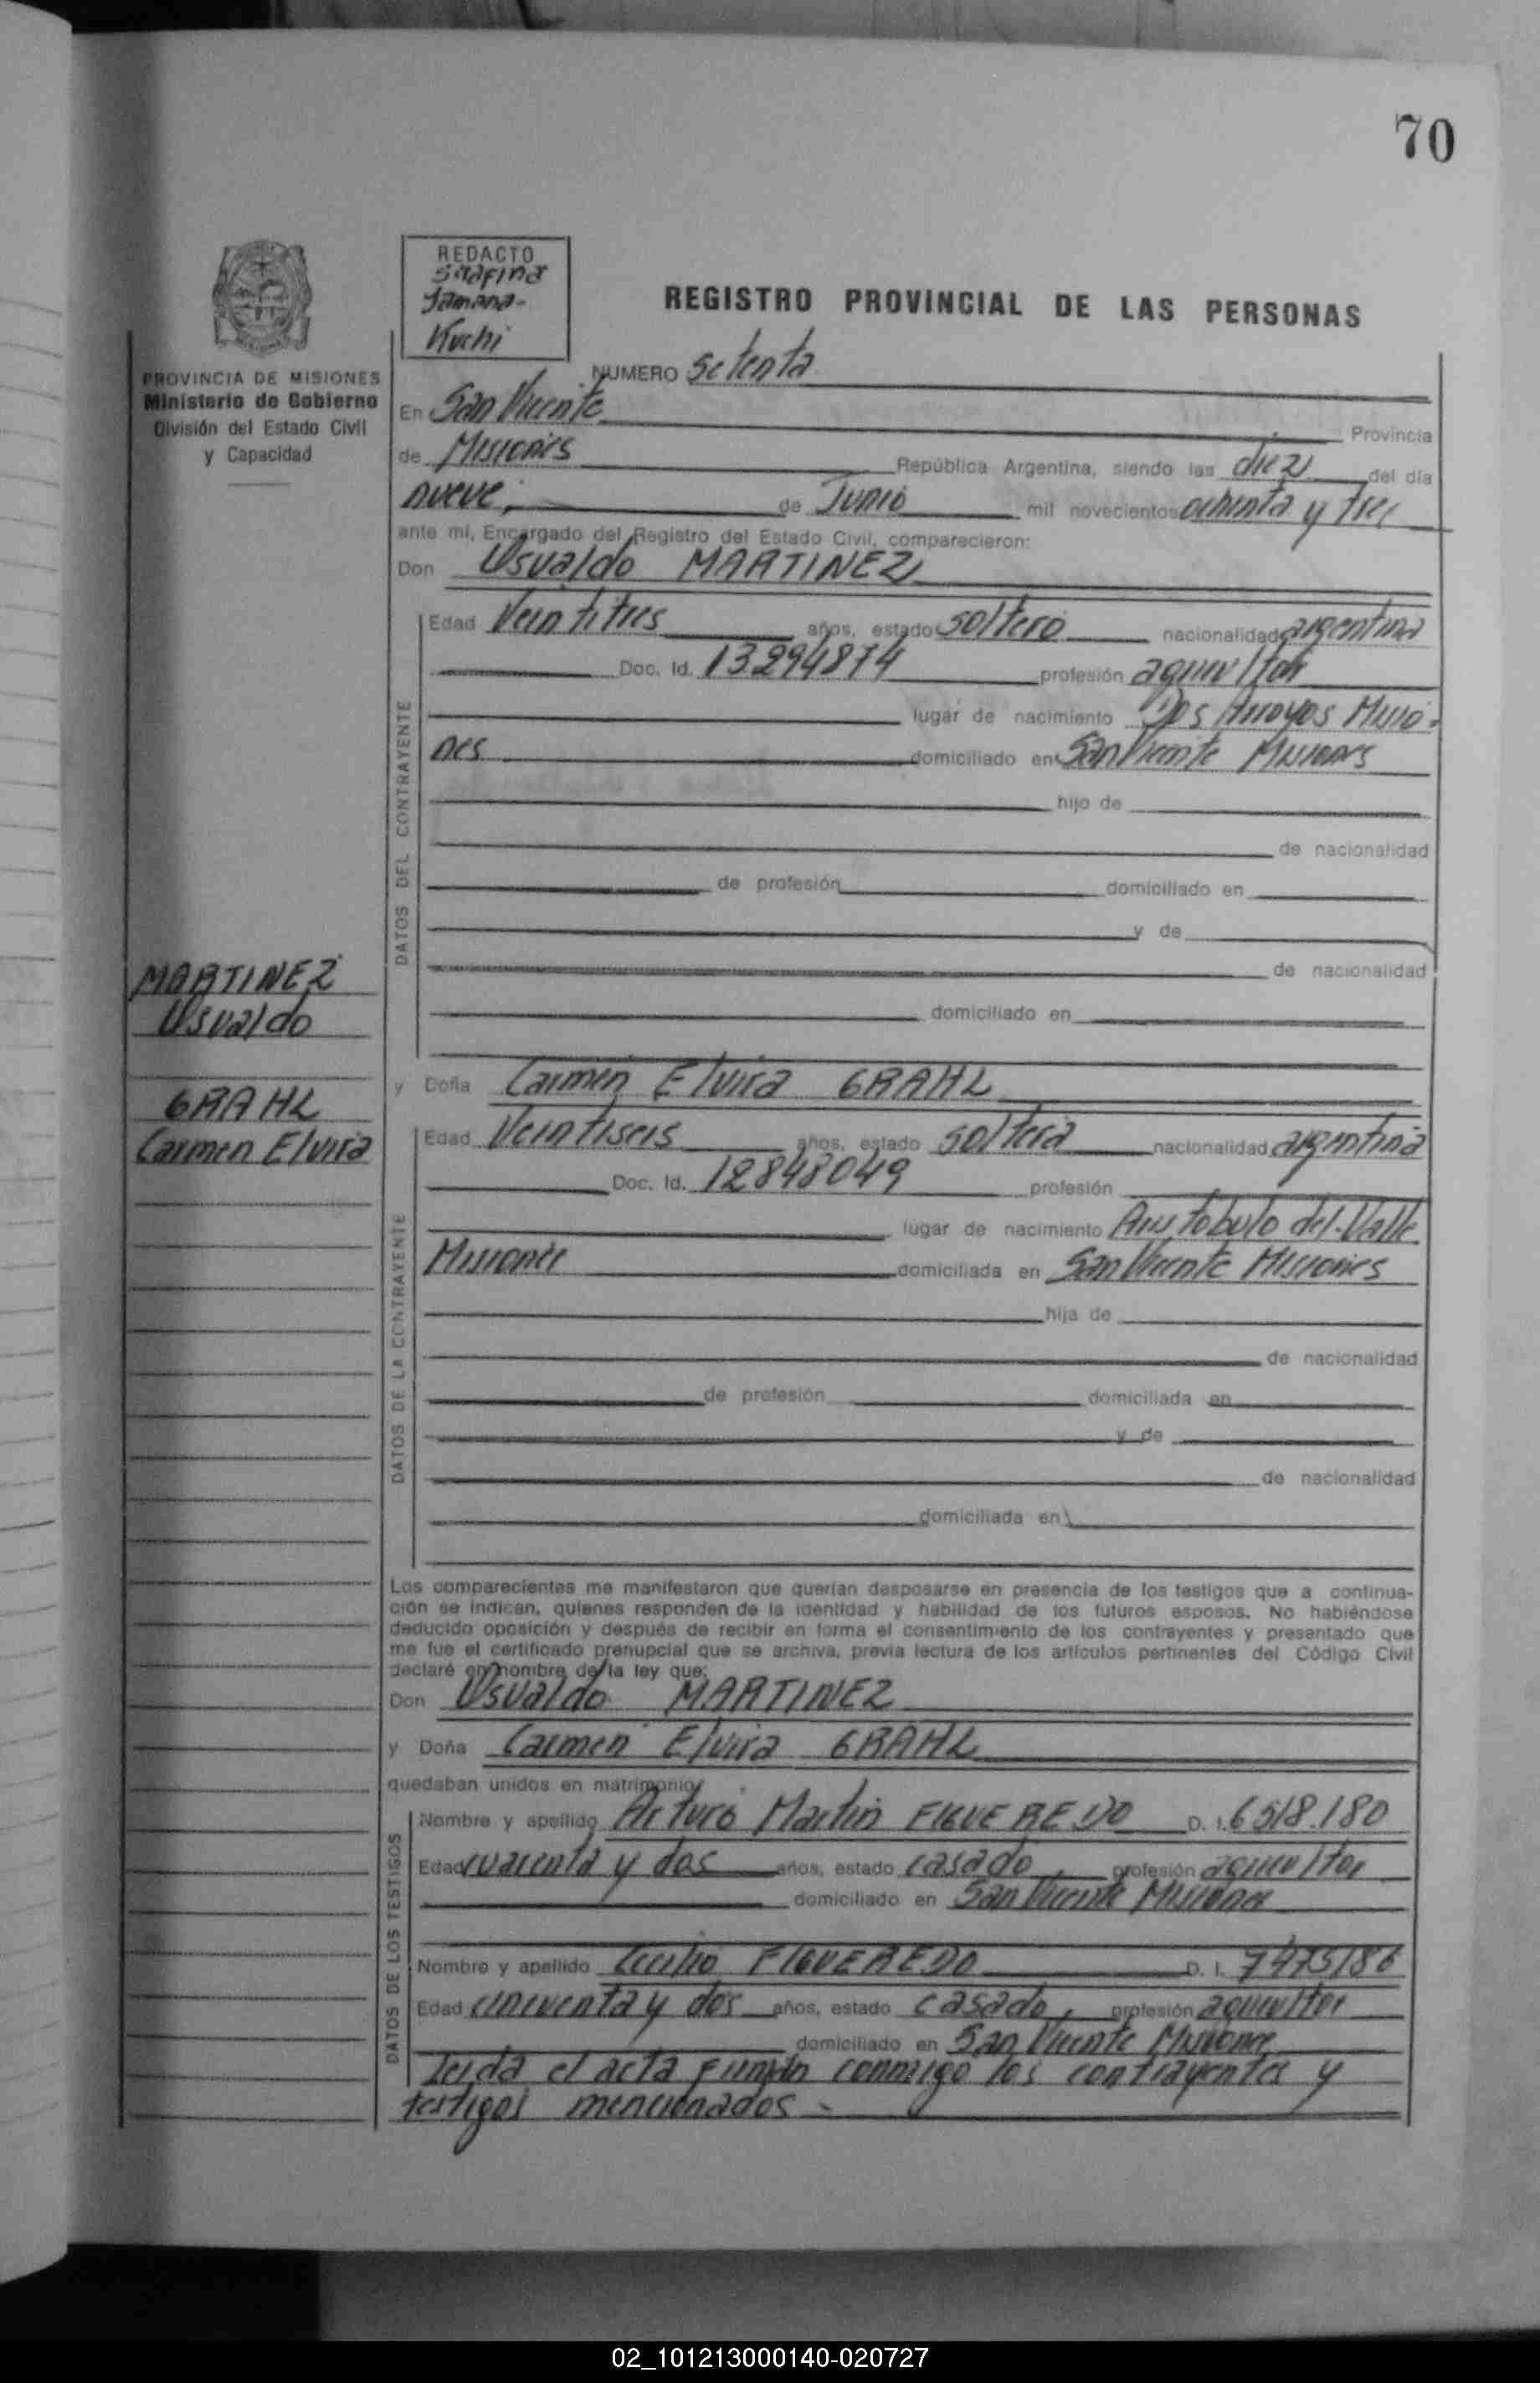 70
REDACTO
Serafina
Kuchi
REGISTRO PROVINCIAL DE LAS PERSONAS
PROVINCIA DE MISIONES
Ministerio de Gobierno
División del Estado Civil
y Capacidad
NUMERO Setenta
En San Vicente Provincia
de Misiones República Argentina, siendo las diez del día
nueve, de Junio mil novecientos ochenta y tres
ante mí, Encargado del Registro del Estado Civil, comparecieron:
Don Usvaldo MARTINEZ
DATOS DEL CONTRAYENTE
Edad Veintitres años, estado soltero nacionalidad argentina
Doc. Id. 13294874 profesión agricultor
lugar de nacimiento Dos Arroyos Misio-
nes domiciliado en San Vicente Misiones
hijo de
de nacionalidad
de profesión domiciliado en
y de
de nacionalidad
domiciliado en
MARTINEZ
Usvaldo
GRAHL
Carmen Elvira
y Doña Carmen Elvira GRAHL
DATOS DE LA CONTRAYENTE
Edad Veintiseis años, estado soltera nacionalidad argentina
Doc. Id. 12848049 profesión
lugar de nacimiento Aristobulo del Valle
Misiones domiciliada en San Vicente Misiones
hija de
de nacionalidad
de profesión domiciliada en
y de
de nacionalidad
domiciliada en
Los comparecientes me manifestaron que querían desposarse en presencia de los testigos que a continua-
ción se indican, quienes responden de la identidad y habilidad de los futuros esposos. No habiéndose
deducido oposición y después de recibir en forma el consentimiento de los contrayentes y presentado que
me fue el certificado prenupcial que se archiva, previa lectura de los artículos pertinentes del Código Civil
declaré en nombre de la ley que:
Don Usvaldo MARTINEZ
y Doña Carmen Elvira GRAHL
quedaban unidos en matrimonio
DATOS DE LOS TESTIGOS
Nombre y apellido Arturo Martin FIGUEREDO D. I. 6518.180
Edad cuarenta y dos años, estado casado, profesión agricultor
domiciliado en San Vicente Misiones
Nombre y apellido Cecilio FIGUEREDO D. I. 7475186
Edad cincuenta y dos años, estado casado, profesión agricultor
domiciliado en San Vicente Misiones
Leida el acta firman conmigo los contrayentes y
testigos mencionados -
02_101213000140-020727